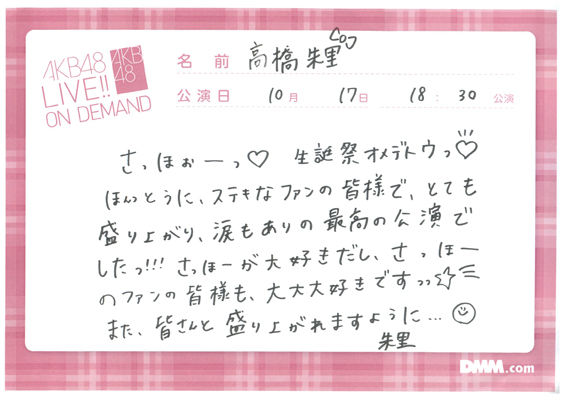 AKB48
LIVE!!
ON DEMAND
AKB
48
名前 高橋朱里
公演日 10月 17日 18:30 公演
さっほぉーっ♡ 生誕祭オメデトウっ♡
ほんっとうに、ステキなファンの皆様で、とても
盛り上がり、涙もありの最高の公演で
したっ!!! さっほーが大好きだし、さっほー
のファンの皆様も、大大大好きですっっ☆
また、皆さんと盛り上がれますように…☺
朱里
DMM.com